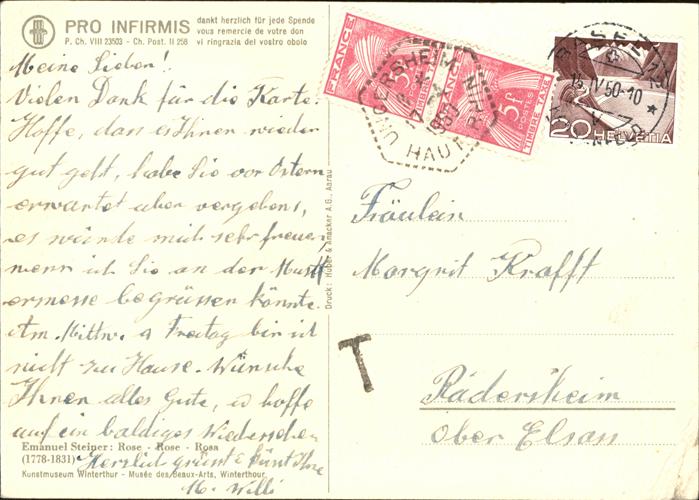 PRO INFIRMIS
dankt herzlich für jede Spende
vous remercie de votre don
vi ringrazia del vostro obolo
P. Ch. VIII 23503 - Ch. Post. II 258
Meine Lieben!
Vielen Dank für die Karte.
Hoffe, dass es Ihnen wieder
gut geht, habe Sie vor Ostern
erwartet aber vergebens,
es würde mich sehr freuen
wenn ich Sie an der Must
ermesse begrüssen könnte.
Am Mittw. & Freitag bin ich
nicht zu Hause. Wünsche
Ihnen alles Gute, & hoffe
auf ein baldiges Wiedersehen
Herzlich grüsst &
M. Willi
Emanuel Steiner: Rose - Rose - Rosa
(1778-1831)
Kunstmuseum Winterthur - Musée des Beaux-Arts, Winterthour.
Druck: Huber & Anacker A.G., Aarau
FRANCE
5F
POSTES
TIMBRE TAXE
FRANCE
5F
POSTES
TIMBRE TAXE
UNGERSHEIM
HAUT RHIN
1950
BASEL
V 50-10
20 HELVETIA
T
Fräulein
Margrit Krafft
Rädersheim
Ober Elsass